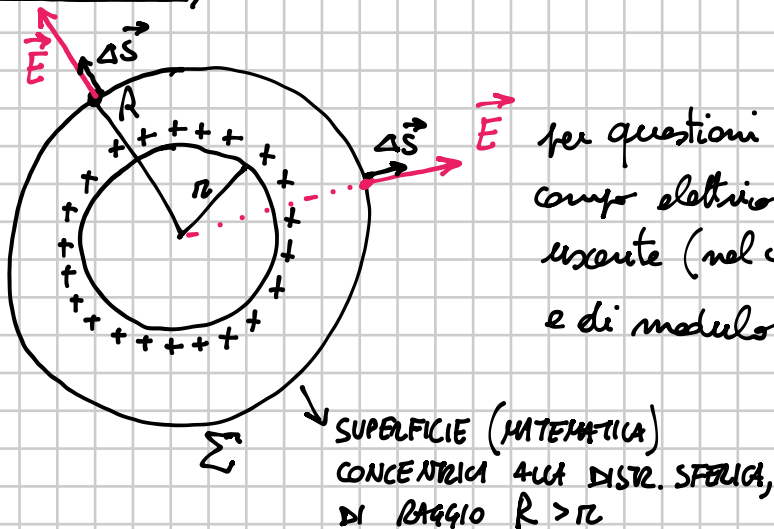 E ΔS
R
r
ΔS E
per questioni
campo elettrico
uscente (nel c
e di modulo
Σ
SUPERFICIE (MATEMATICA)
CONCENTRICA ALLA DISTR. SFERICA,
DI RAGGIO R > r